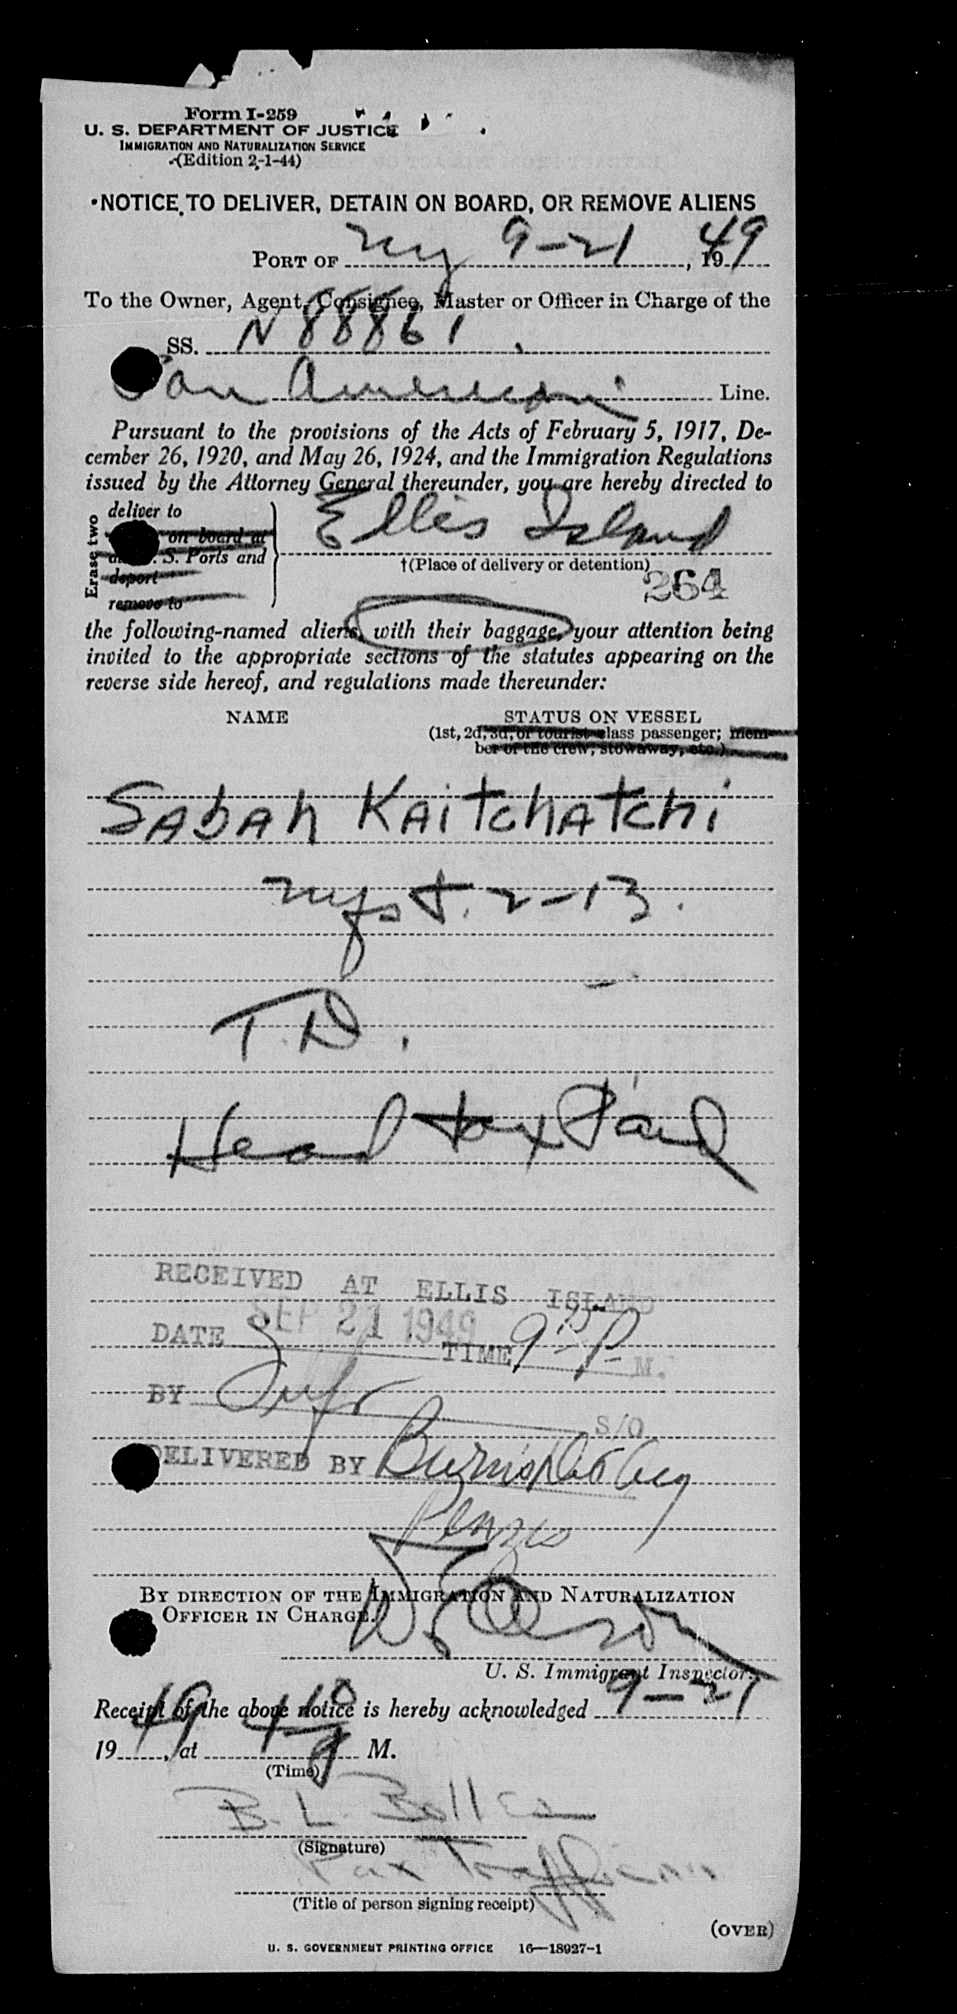 Form I-259
U. S. DEPARTMENT OF JUSTICE
IMMIGRATION AND NATURALIZATION SERVICE
(Edition 2-1-44)
NOTICE TO DELIVER, DETAIN ON BOARD, OR REMOVE ALIENS
PORT OF NY 9-21, 1949
To the Owner, Agent, Consignee, Master or Officer in Charge of the
SS. N 88861
Pan American Line.
Pursuant to the provisions of the Acts of February 5, 1917, De-
cember 26, 1920, and May 26, 1924, and the Immigration Regulations
issued by the Attorney General thereunder, you are hereby directed to
Erase two
deliver to
on board at
S. Ports and
deport
remove to
Ellis Island
†(Place of delivery or detention)
264
the following-named aliens, with their baggage, your attention being
invited to the appropriate sections of the statutes appearing on the
reverse side hereof, and regulations made thereunder:
NAME STATUS ON VESSEL
(1st, 2d, 3d, or tourist class passenger; mem-
ber of the crew, stowaway, etc.)
SABAH KAITCHATCHI
2-13.
T.D.
Head tax Paid
RECEIVED AT ELLIS ISLAND
DATE SEP 21 1949 TIME 9 P M.
BY S/O
DELIVERED BY Burns
BY DIRECTION OF THE IMMIGRATION AND NATURALIZATION
OFFICER IN CHARGE.
U. S. Immigrant Inspector.
Receipt of the above notice is hereby acknowledged 9-21
1949, at M.
(Time)
B. L.
(Signature)
Pax
(Title of person signing receipt)
(OVER)
U. S. GOVERNMENT PRINTING OFFICE 16—18927-1